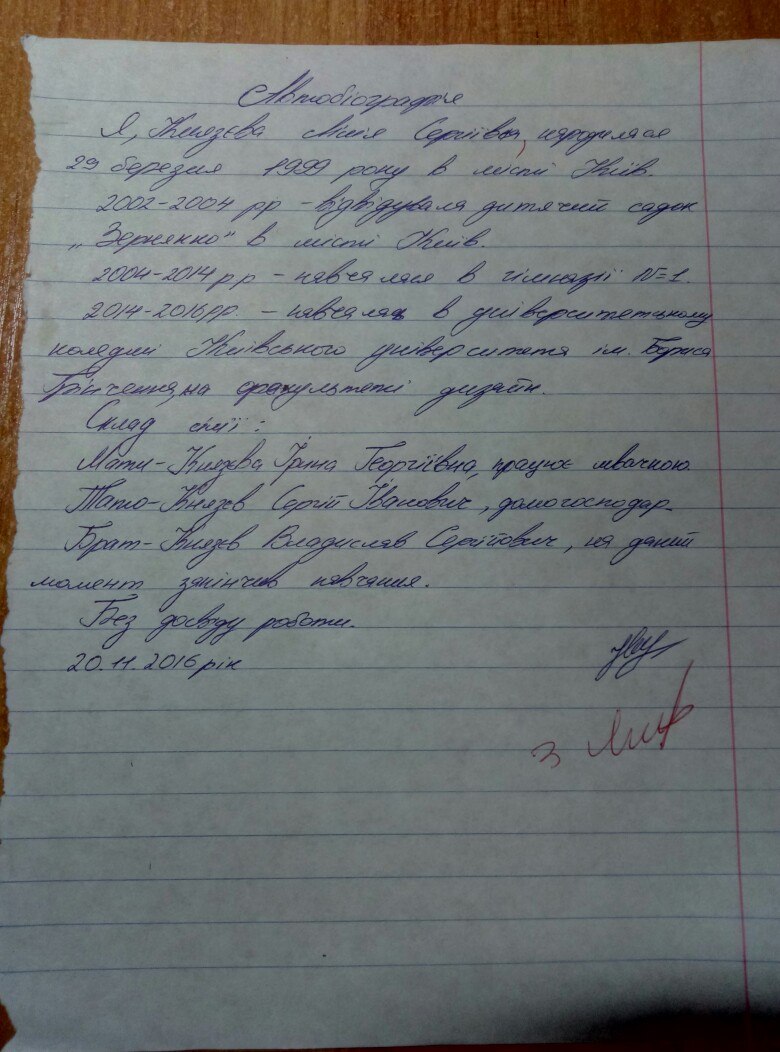 Автобіографія
Я, Князєва Лілія Сергіївна, народилася
29 березня 1999 року в місті Київ.
2002-2004 рр - відвідувала дитячий садок
„Зернятко" в місті Київ.
2004-2014 рр - навчалася в гімназії №1.
2014-2016 рр. - навчалась в університетському
коледжі Київського університета ім. Бориса
Грінченка, на факультеті дизайн.
Склад сім'ї:
Мати - Князєва Ірина Георгіївна, працює швачкою.
Тато - Князєв Сергій Іванович, домогосподар.
Брат - Князєв Владислав Сергійович, на даний
момент закінчив навчання.
Без досвіду роботи.
20.11.2016 рік
3